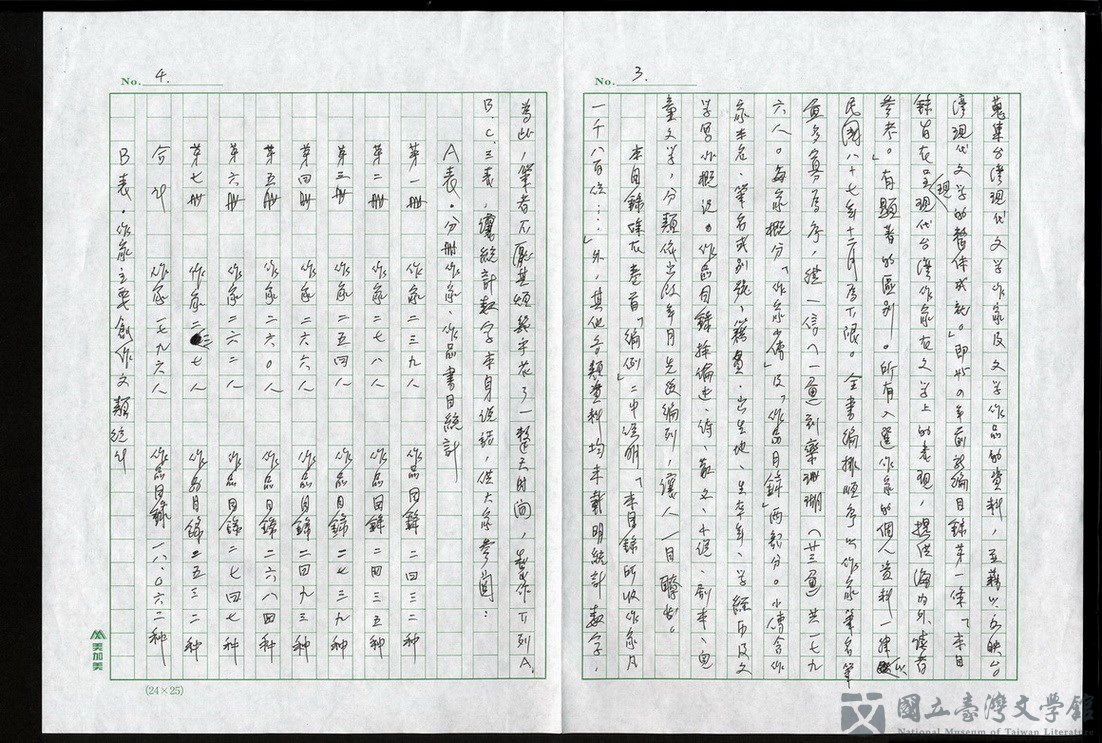 No. 3.
蒐集台灣現代文學作家及文學作品的資料,並藉以反映台
灣現代文學的整体成就。」即与0年前新編目錄第一條「本目
錄旨在呈現現代台灣作家在文學上的表現,提供海內外讀者
參考。」有顯著的區別。所有入選作家的個人資料一律以
民國八十七年十二月為下限。全書編排順序以作家筆名筆
畫多寡為序,從一信(一畫)到欒珊瑚(廿三畫)共一七九
六人。每家概分「作家小傳」及「作品目錄」兩部分。小傳含作
家本名、筆名或別號、籍貫、出生地、生卒年、學經歷及文
學寫作概況。作品目錄按論述、詩、散文、小說、劇本、兒
童文學,分類依出版年月先後編列,讓人一目瞭然。
本目錄除在卷首「編例」二中說明「本目錄所收作家凡
一千八百位……」外,其他各類資料均未載明統計數字,
No. 4.
為此,筆者不厭其煩幾乎花了一整天時間,製作下列A.
B.C.三表,讓統計數字來身說話,供大家參閱:
A表.分冊作家、作品書目統計
第一冊 作家二三九人 作品目錄二四三二种
第二冊 作家二七八人 作品目錄二四三五种
第三冊 作家二五四人 作品目錄二七三九种
第四冊 作家二六六人 作品目錄二四九三种
第五冊 作家二六0人 作品目錄二六八四种
第六冊 作家二六二人 作品目錄二七四七种
第七冊 作家二三七人 作品目錄二五三二种
合計 作家一七九六人 作品目錄一八.0六二种
B表.作家主要創作文類統計
美加美
(24×25)
國立臺灣文學館
National Museum of Taiwan Literature